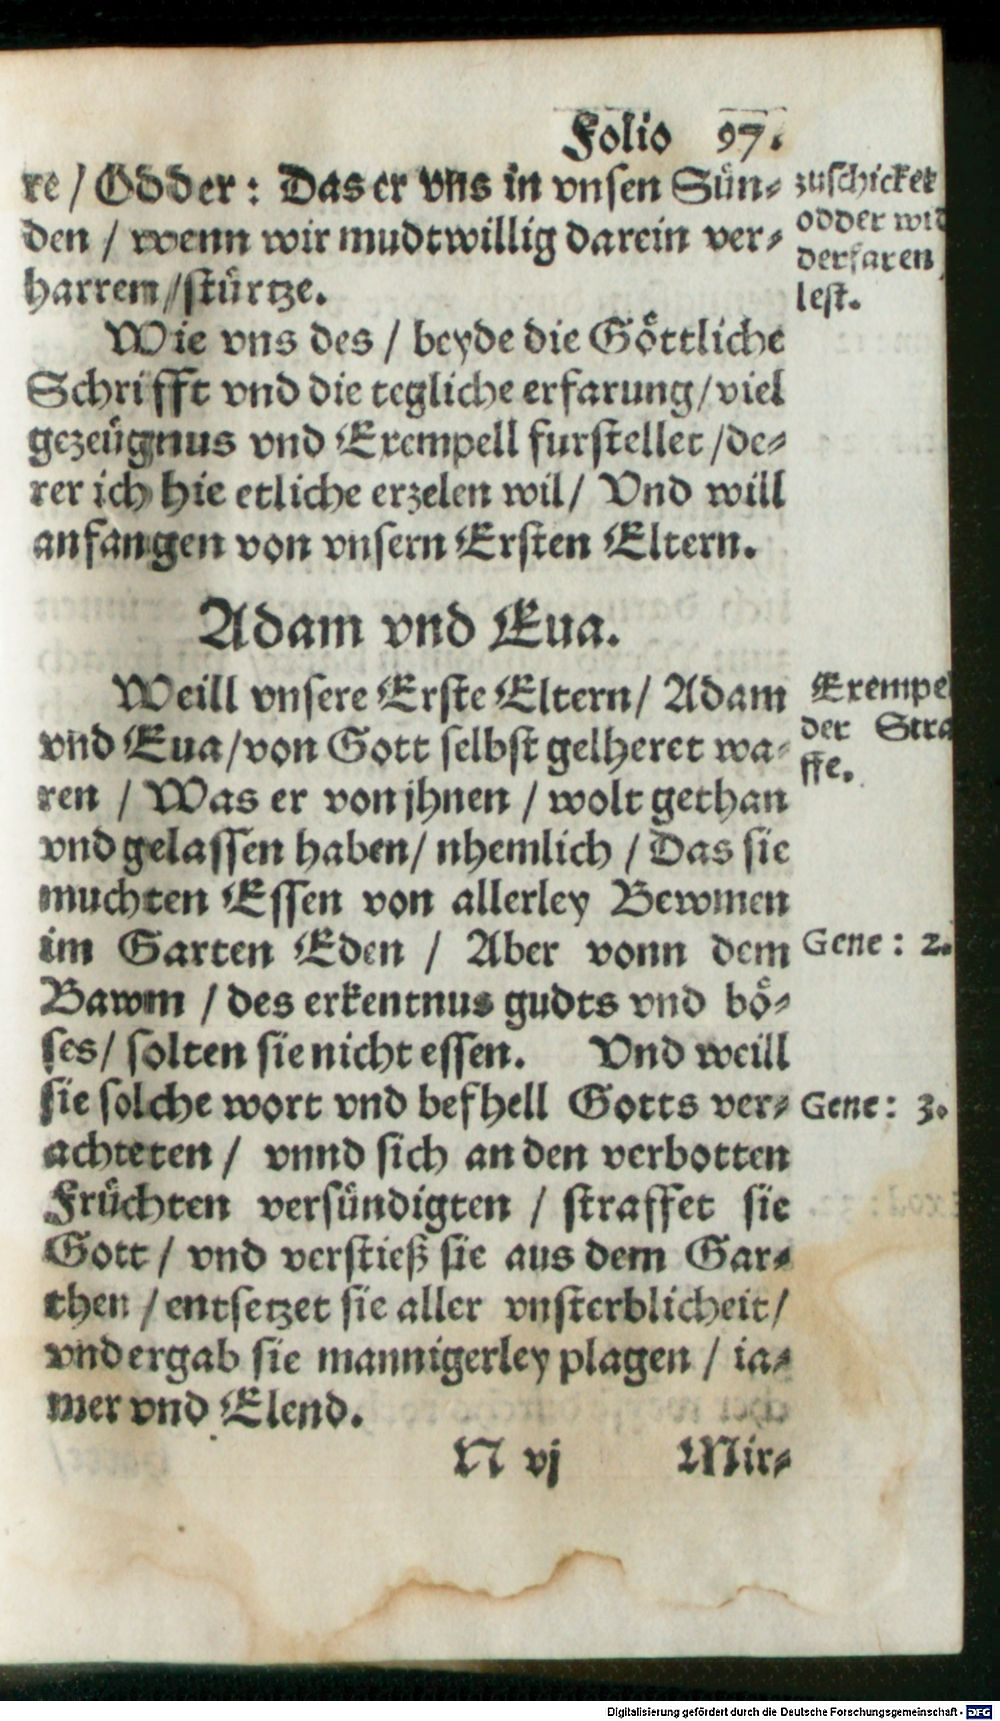 Folio 97.
re / Odder: Das er vns in vnsen Sün⸗
den / wenn wir mudtwillig darein ver⸗
harren / stürtze.
zuschicket
odder wid
derfaren
lest.
Wie vns des / beyde die Göttliche
Schrifft vnd die tegliche erfarung / viel
gezeügnus vnd Exempell furstellet / de⸗
rer ich hie etliche erzelen wil / Vnd will
anfangen von vnsern Ersten Eltern.
Adam vnd Eua.
Weill vnsere Erste Eltern / Adam
vnd Eua / von Gott selbst gelheret wa⸗
ren / Was er von jhnen / wolt gethan
vnd gelassen haben / nhemlich / Das sie
muchten Essen von allerley Bewmen
im Garten Eden / Aber vonn dem
Bawm / des erkentnus gudts vnd bö⸗
ses / solten sie nicht essen. Vnd weill
sie solche wort vnd befhell Gotts ver⸗
achteten / vnnd sich an den verbotten
Früchten versündigten / straffet sie
Gott / vnd verstieß sie aus dem Gar⸗
then / entsetzet sie aller vnsterblicheit /
vnd ergab sie mannigerley plagen / ia⸗
mer vnd Elend.
Exempel
der Stra
ffe.
Gene: 2.
Gene: 3.
N vj Mir⸗
Digitalisierung gefördert durch die Deutsche Forschungsgemeinschaft - DFG